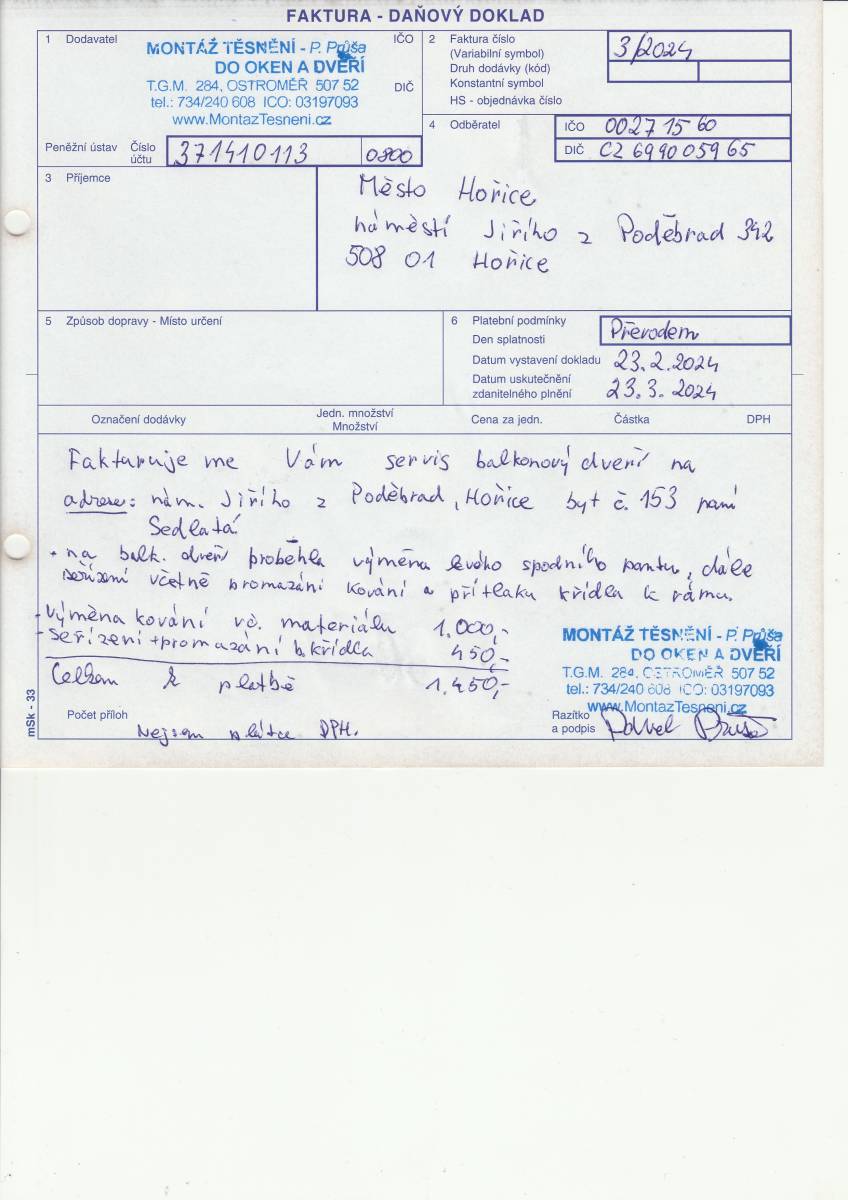 FAKTURA - DAŇOVÝ DOKLAD
1 Dodavatel IČO
MONTÁŽ TĚSNĚNÍ - P. Průša
DO OKEN A DVEŘÍ
DIČ
T.G.M. 284, OSTROMĚŘ 507 52
tel.: 734/240 608 ICO: 03197093
www.MontazTesneni.cz
Peněžní ústav Číslo účtu 371410113 0800
2 Faktura číslo 3/2024
(Variabilní symbol)
Druh dodávky (kód)
Konstantní symbol
HS - objednávka číslo
4 Odběratel IČO 00271560
DIČ CZ6990059 65
3 Příjemce
Město Hořice
náměstí Jiřího z Poděbrad 342
508 01 Hořice
5 Způsob dopravy - Místo určení
6 Platební podmínky Převodem
Den splatnosti
Datum vystavení dokladu 23.2.2024
Datum uskutečnění
zdanitelného plnění 23.3.2024
Označení dodávky Jedn. množství Množství Cena za jedn. Částka DPH
Fakturuje me Vám servis balkonový dveří na
adrese: nám. Jiřího z Poděbrad, Hořice byt č. 153 paní
Sedlatá
• na balk. dveří proběhla výměna levého spodního pantu, dále
seřízení včetně promazání kování a přítlaku křídla k rámu.
- Výměna kování vč. materiálu 1.000,-
- Seřízení + promazání b. křídla 450,-
Celkem k platbě 1.450,-
MONTÁŽ TĚSNĚNÍ - P. Průša
DO OKEN A DVEŘÍ
T.G.M. 284, OSTROMĚŘ 507 52
tel.: 734/240 608 ICO: 03197093
www.MontazTesneni.cz
mSk - 33
Počet příloh
Nejsem plátce DPH.
Razítko
a podpis Pavel Průša